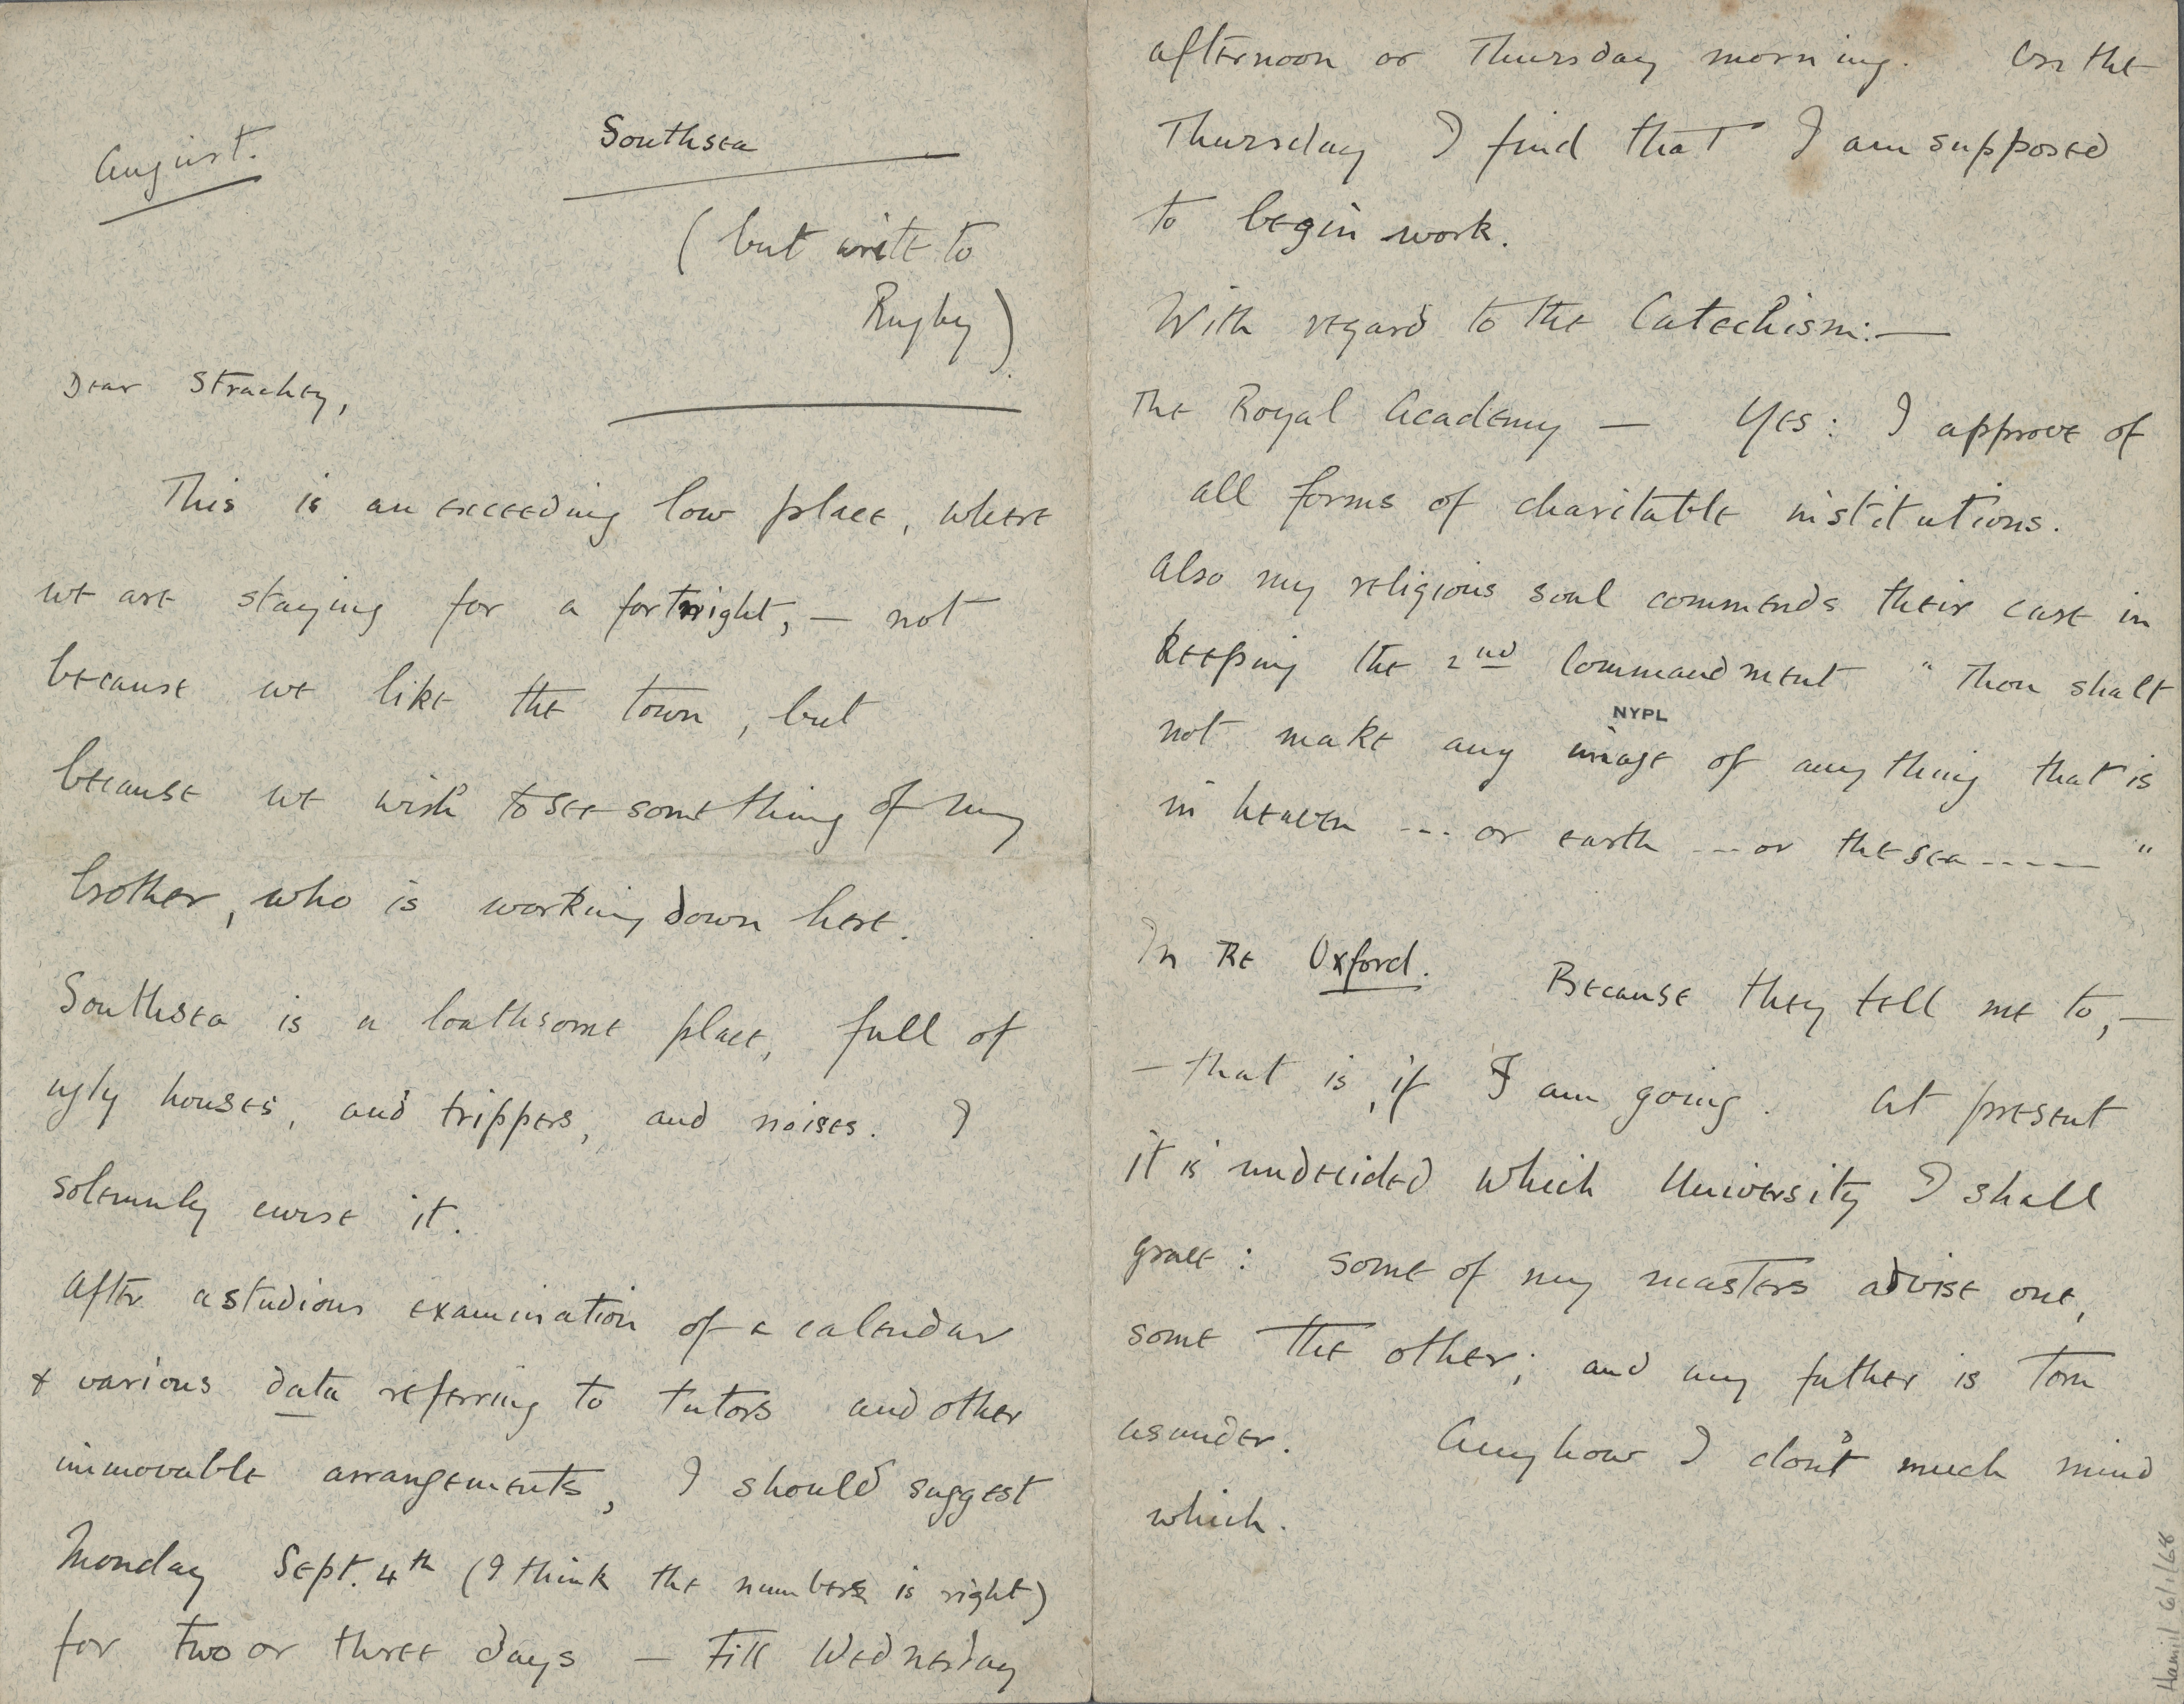 August.
Southsea
(but write to
Rugby)
Dear Strachey,
This is an exceeding low place, where
we are staying for a fortnight, — not
because we like the town, but
because we wish to see something of my
brother, who is working down here.
Southsea is a loathsome place, full of
ugly houses, and trippers, and noises. I
solemnly curse it.
After a studious examination of a calendar
& various data referring to tutors and other
immovable arrangements, I should suggest
Monday Sept. 4th (I think the numbers is right)
for two or three days — till Wednesday
afternoon or Thursday morning. On the
Thursday I find that I am supposed
to begin work.
With regard to the Catechism:—
The Royal Academy — Yes: I approve of
all forms of charitable institutions.
Also my religious soul commends their care in
keeping the 2nd Commandment "Thou shalt
NYPL
not make any image of anything that is
in heaven --- or earth --- or the sea ----- "
In Re Oxford. Because they tell me to, —
— that is, if I am going. At present
it is undecided which University I shall
grace: some of my masters advise one,
some the other; and my father is torn
asunder. Anyhow I don't much mind
which.
Hamil 6/1/68